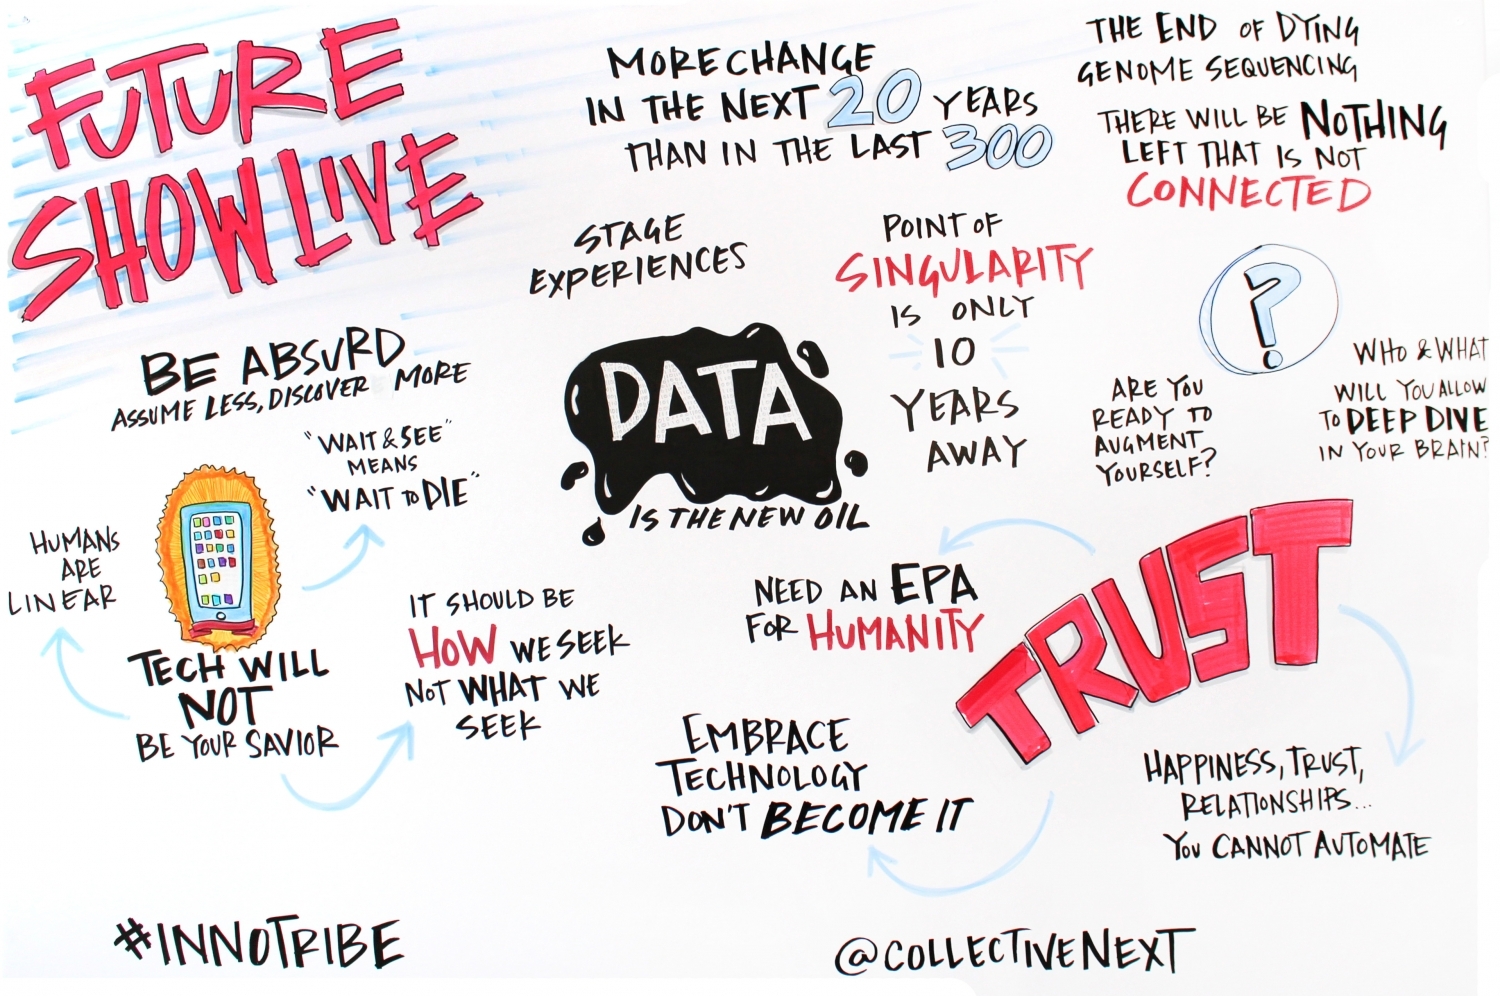 FUTURE
SHOW LIVE
MORE CHANGE
IN THE NEXT 20 YEARS
THAN IN THE LAST 300
THE END OF DYING
GENOME SEQUENCING
THERE WILL BE NOTHING
LEFT THAT IS NOT
CONNECTED
STAGE
EXPERIENCES
POINT OF
SINGULARITY
IS ONLY
10
YEARS
AWAY
?
ARE YOU
READY TO
AUGMENT
YOURSELF?
WHO & WHAT
WILL YOU ALLOW
TO DEEP DIVE
IN YOUR BRAIN?
BE ABSURD
ASSUME LESS, DISCOVER MORE
"WAIT & SEE"
MEANS
"WAIT TO DIE"
DATA
IS THE NEW OIL
HUMANS
ARE
LINEAR
TECH WILL
NOT
BE YOUR SAVIOR
IT SHOULD BE
HOW WE SEEK
NOT WHAT WE
SEEK
NEED AN EPA
FOR HUMANITY
TRUST
EMBRACE
TECHNOLOGY
DON'T BECOME IT
HAPPINESS, TRUST,
RELATIONSHIPS...
YOU CANNOT AUTOMATE
#INNOTRIBE
@COLLECTIVENEXT